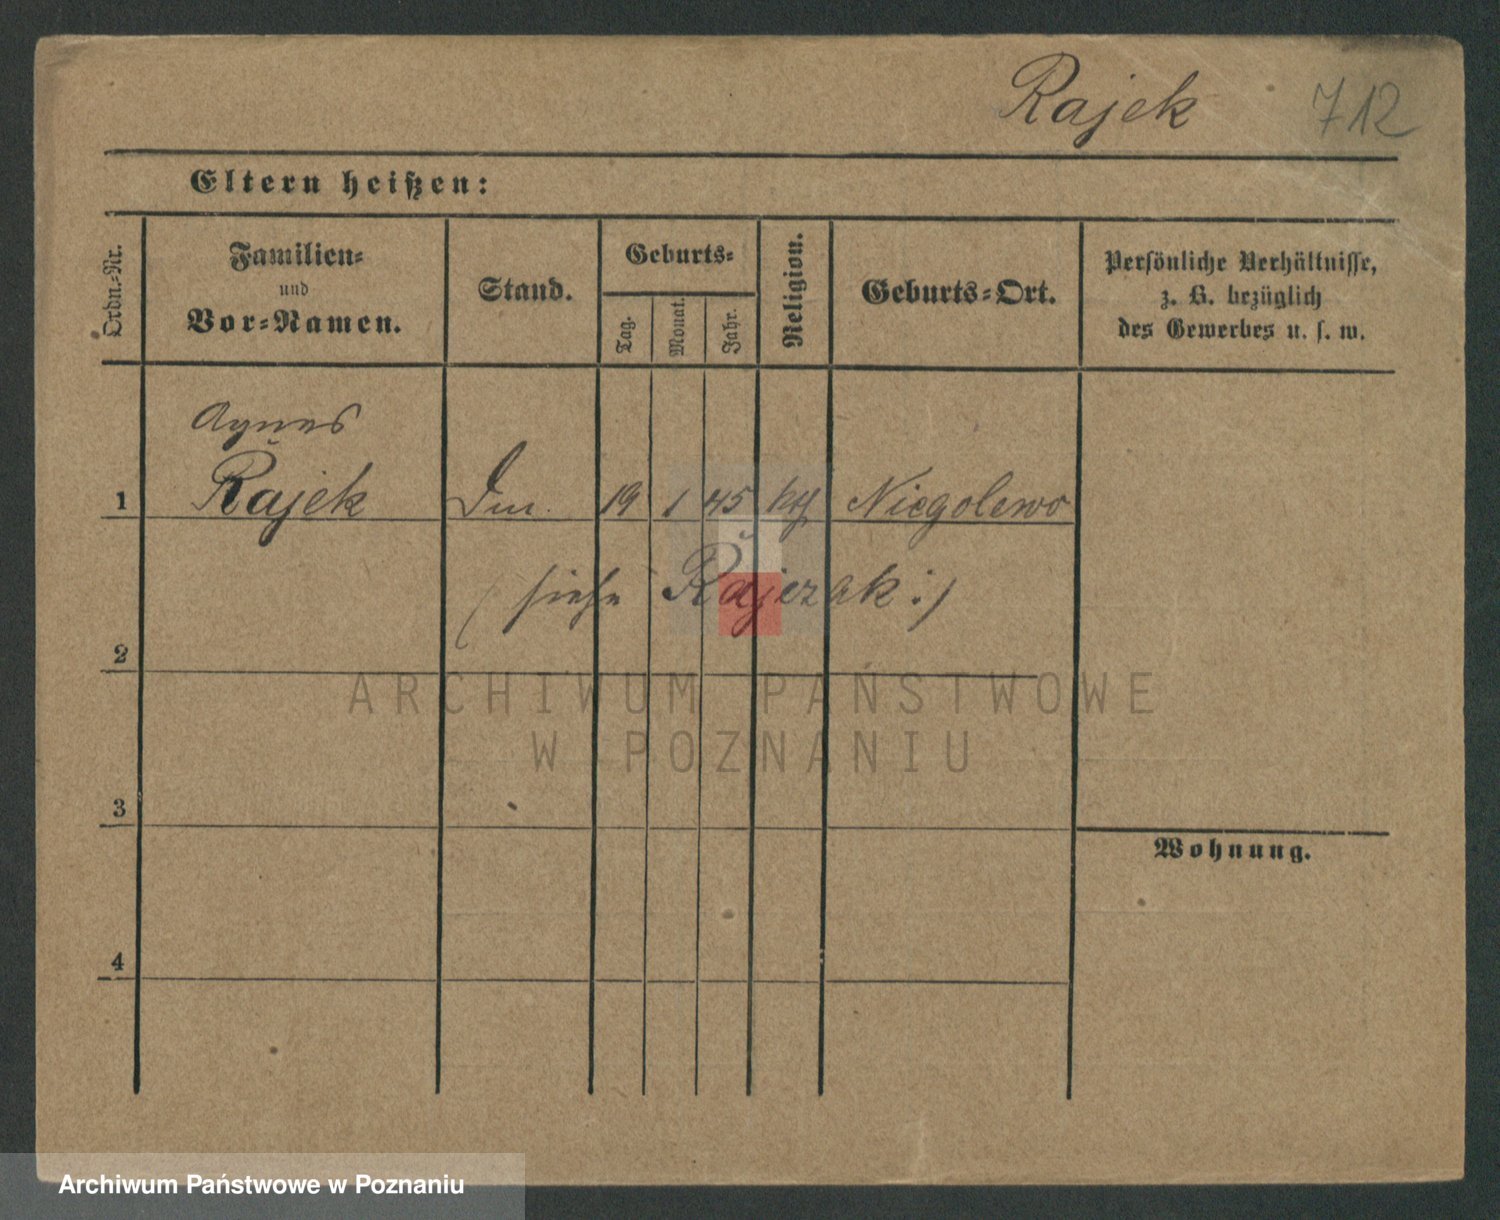 Rajek 712
Eltern heißen:
Ordn.-Nr.
Familien-
und
Vor-Namen.
Stand.
Geburts-
Tag.
Monat.
Jahr.
Religion.
Geburts-Ort.
Persönliche Verhältnisse,
z. B. bezüglich
des Gewerbes u. s. w.
Agnes
1 Rajek 19 1 45 kth Niegolewo
(siehe Rajczak:)
2
3
Wohnung.
4
ARCHIWUM PAŃSTWOWE
W POZNANIU
Archiwum Państwowe w Poznaniu